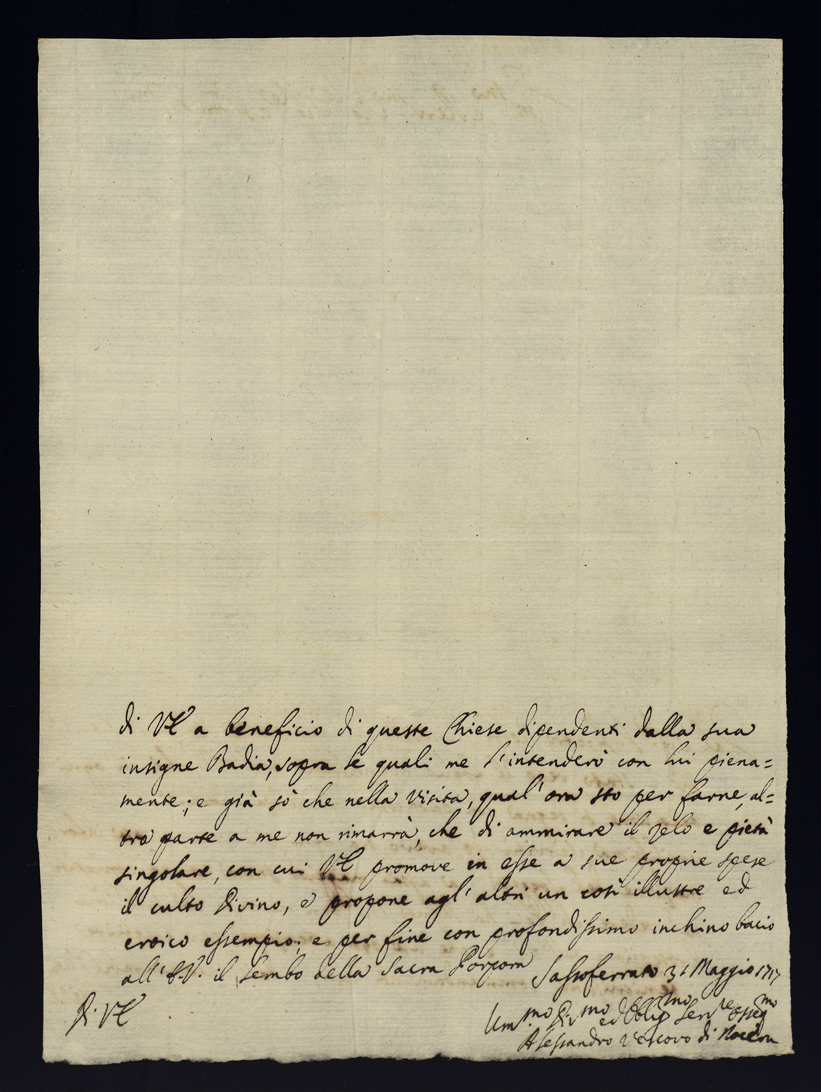 di VE a beneficio di queste Chiese dipendenti dalla sua
insigne Badia, sopra le quali me l'intenderò con lui piena=
mente; e già sò che nella Visita, qual'ora sto per farne, al=
tra parte a me non rimarrà, che di ammirare il zelo e pietà
singolare, con cui VE promove in esse a sue proprie spese
il culto Divino, e propone agl'altri un così illustre ed
eroico essempio; e per fine con profondissimo inchino bacio
all'E.V. il lembo della Sacra Porpora Sassoferrato 31 Maggio 1717
Di VE
Um.mo Div.mo ed Oblig.mo Ser.re Osseq.mo
Alessandro Vescovo di Nocera